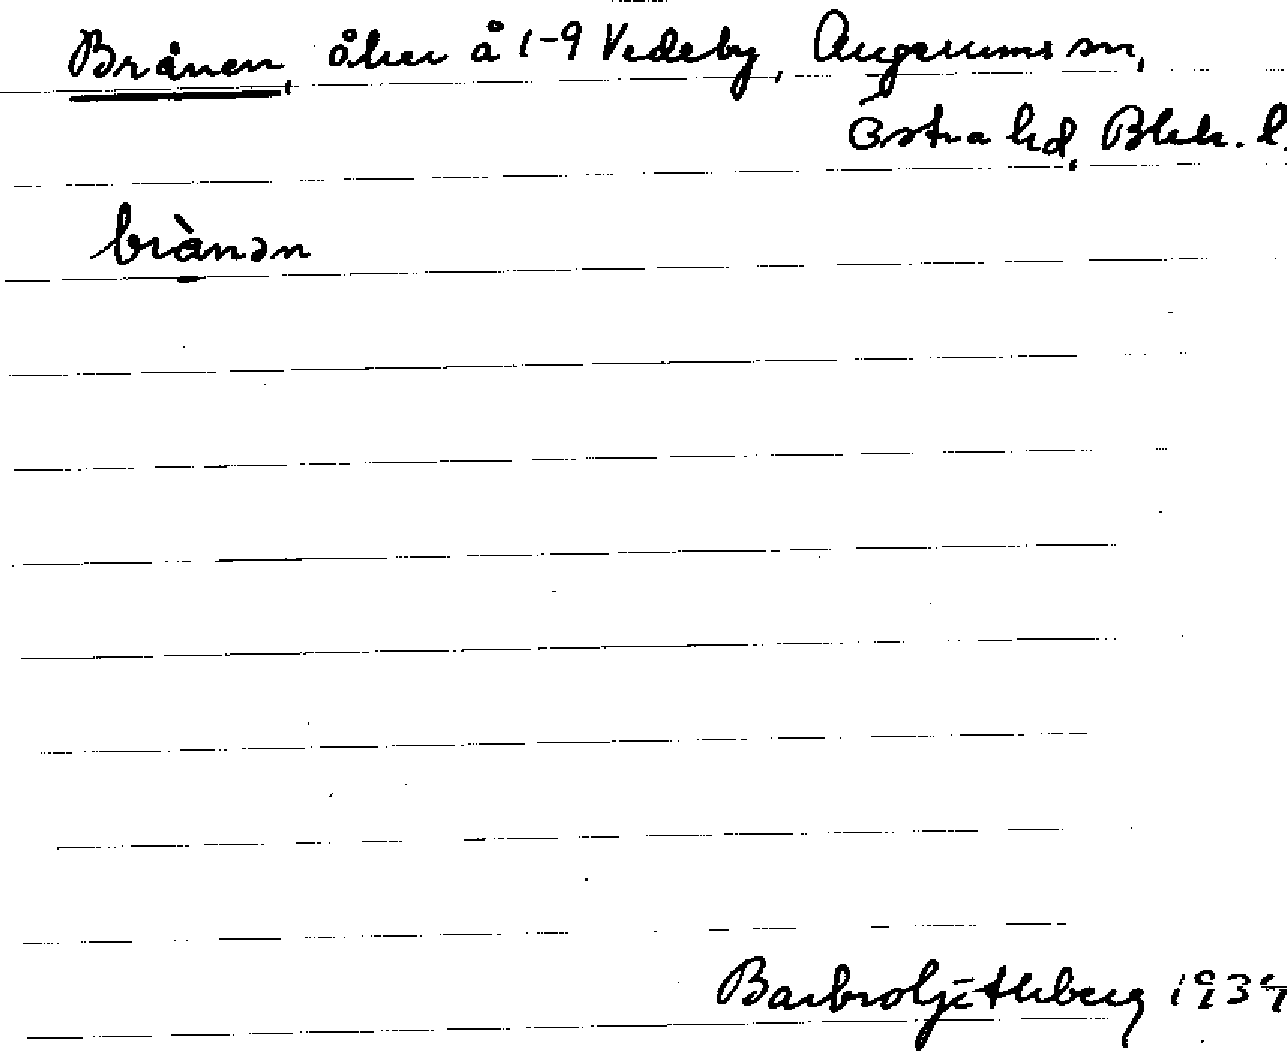 Brånen, åker å 1-9 Vedeby, Augerums sn,
Östra hd, Blek. l.
brànən
Barbro Götleberg 1934